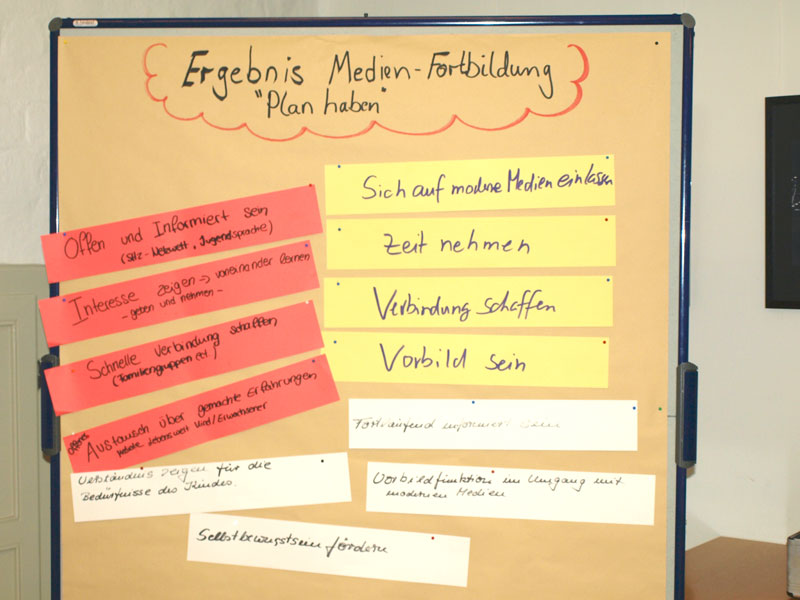 Ergebnis Medien-Fortbildung
"Plan haben"
Offen und Informiert sein
Jugendsprache)
Interesse zeigen → voneinander lernen
- geben und nehmen -
Schnelle Verbindung schaffen,
(Familiengruppen ect.)
Austausch über gemachte Erfahrungen
Lebenswelt Kind/Erwachsener
Sich auf moderne Medien einlassen
Zeit nehmen
Verbindung schaffen
Vorbild sein
Fortlaufend informiert sein
Verständnis zeigen für die
Bedürfnisse des Kindes.
Vorbildfunktion im Umgang mit
modernen Medien
Selbstbewusstsein fördern